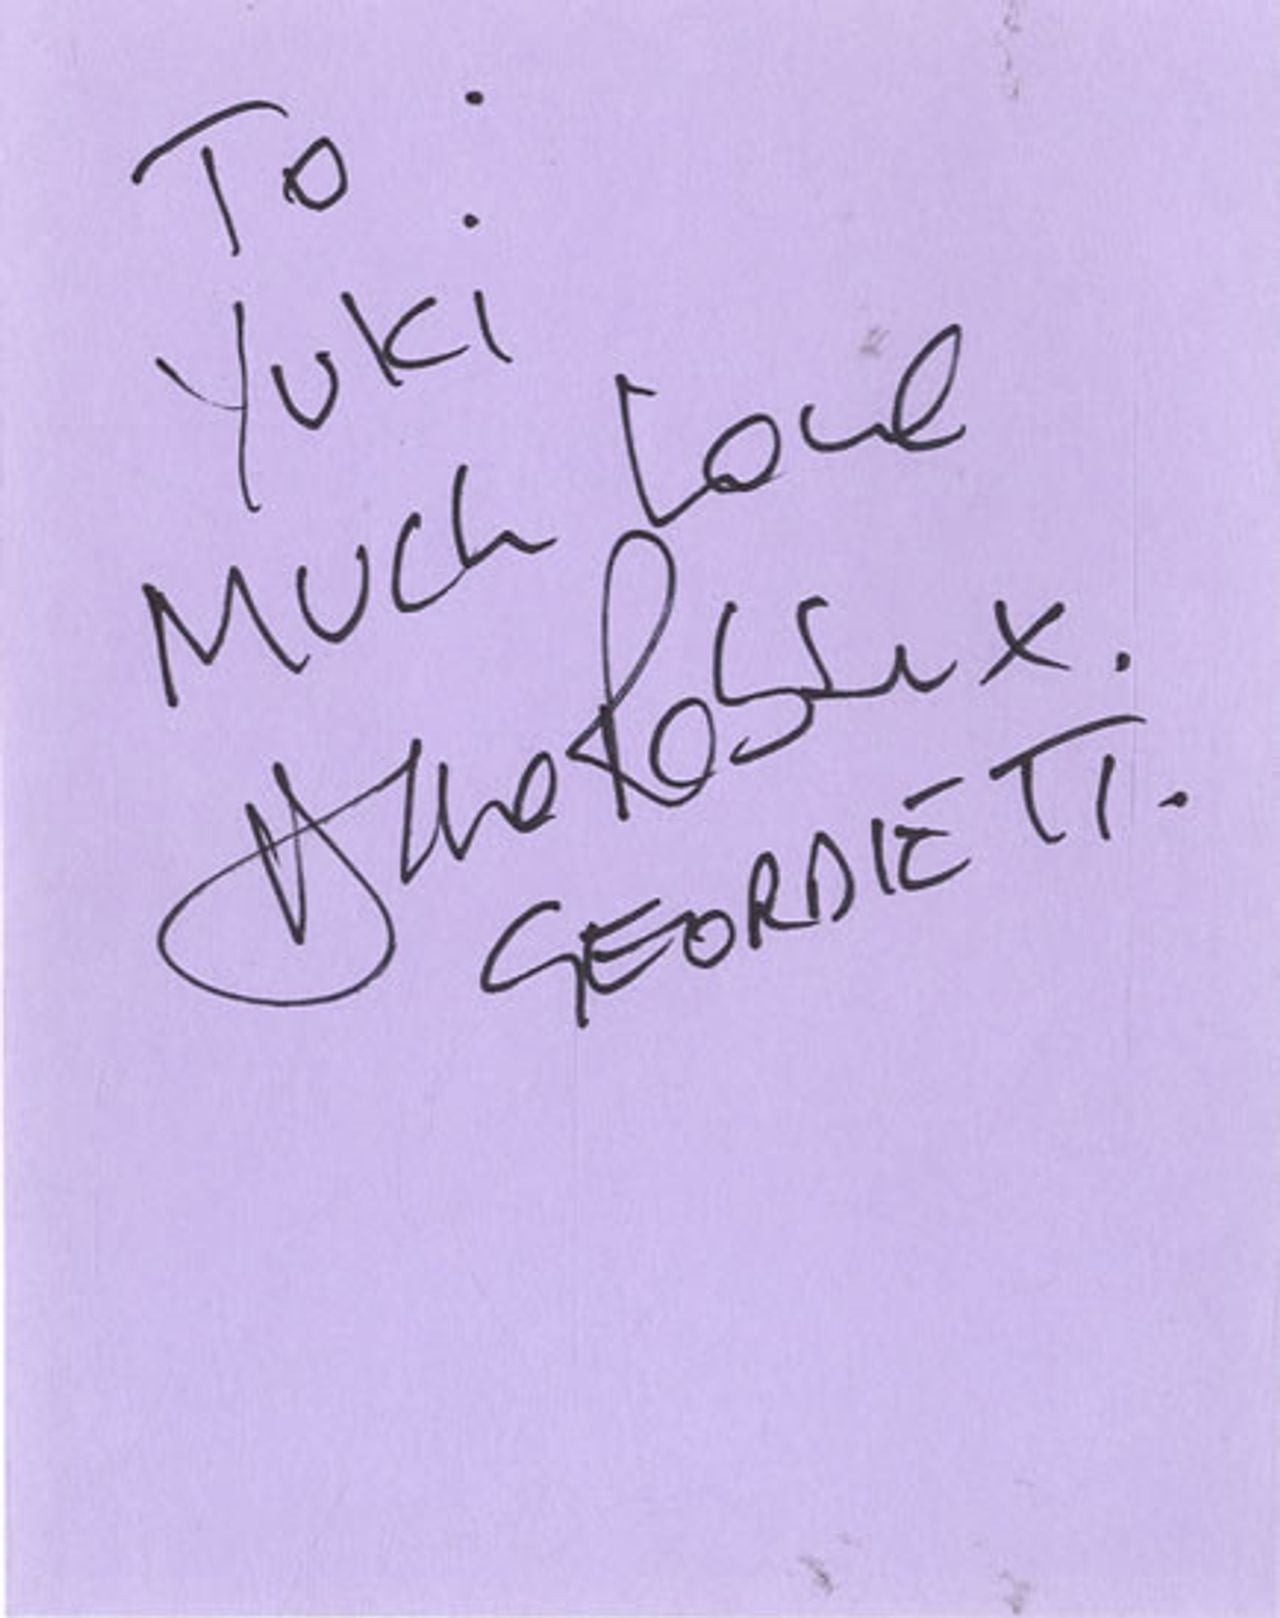 To :
Yuki
Much Love
x.
GEORDIE TI.